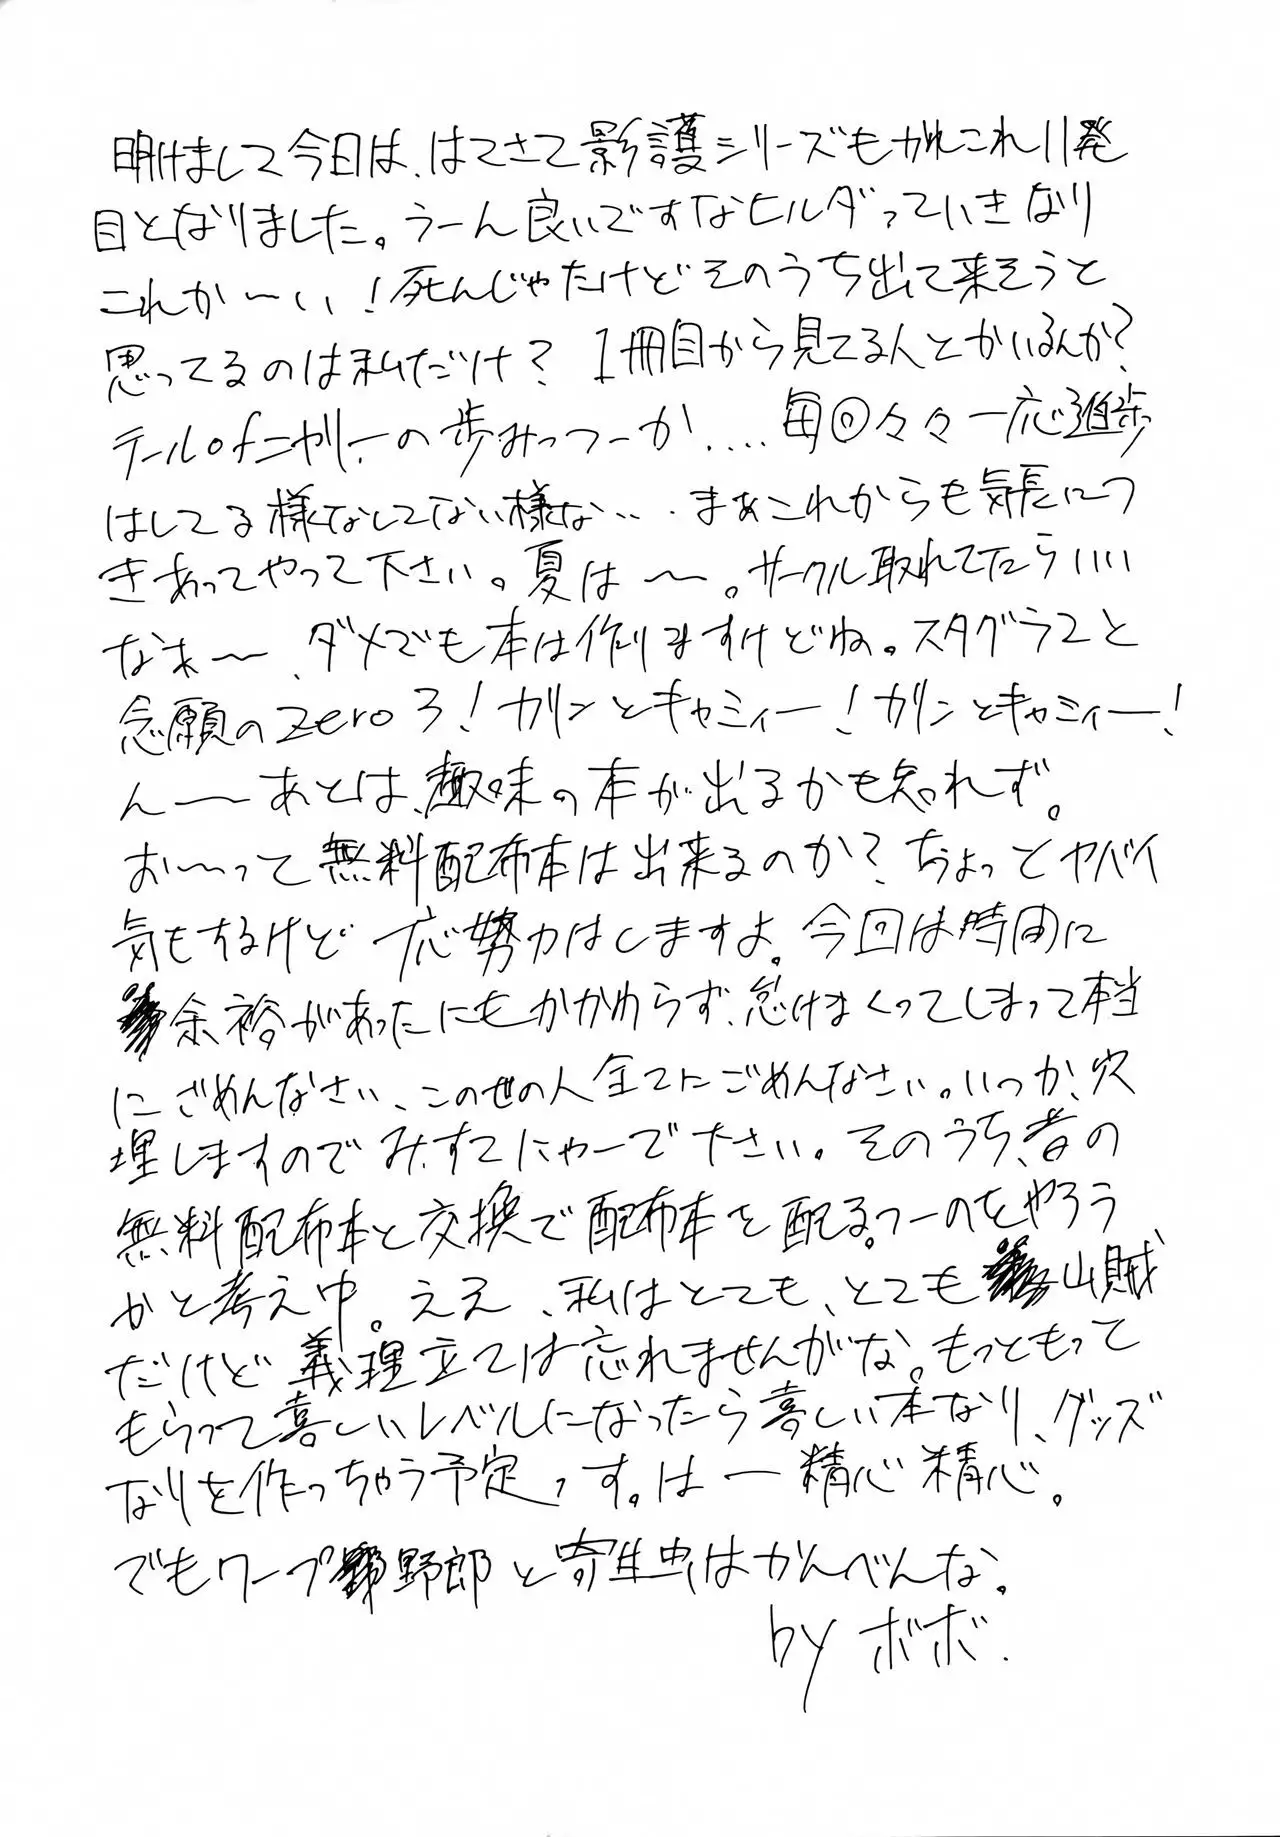 明けまして今日は、はてさて影護シリーズもかれこれ11発
目となりました。うーん良いですなヒルダっていきなり
これか〜い!死んじゃたけどそのうち出て来そうと
思ってるのは私だけ?1冊目から見てる人とかいるんか?
テールofニャリーの歩みっつーか....毎回々々一応進歩
はしてる様なしてない様な・・・まあこれからも気長につ
きあってやって下さい。夏は〜。サークル取れてたらいい
なぁ〜、ダメでも本は作りますけどね。スタグラ2と
念願のzero3!カリンとキャミィー!カリンとキャミィー!
んーーあとは、趣味の本が出るかも知れず。
お〜って無料配布本は出来るのか?ちょっとヤバイ
気もするけど一応努力はしますよ。今回は時間に
余裕があったにもかかわらず、怠けまくってしまって本当
にごめんなさい、この世の人全てにごめんなさい。いつか、穴
埋しますのでみすてにゃーで下さい。そのうち、昔の
無料配布本と交換で配布本を配る。つーのをやろう
かと考え中。ええ、私はとても、とても山賊
だけど義理立ては忘れませんがな。もっともって
もらって喜しいレベルになったら喜しい本なり、グッズ
なりを作っちゃう予定っす。はー精心精心。
でもワープ野郎と寄生虫はかんべんな。
by ボボ.